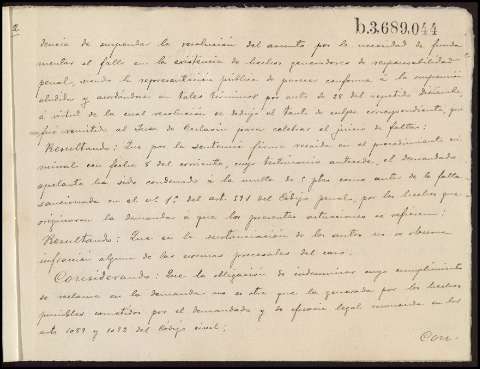 2
b.3.689,044
dencia de suspenda la resolución del asunto por la necesidad de funda-
mentar el fallo en la existencia de hechos generadores de responsabilidad
penal, siendo la representación pública de parecer conforme á la suspensión
aludida y acordándose en tales términos por auto de 28 del repetido Diciembre,
á virtud de la cual resolución se dedujo el tanto de culpa correspondiente, que
fué remitido al Juez de Instrucción para celebrar el juicio de faltas:
Resultando: Que por la sentencia firme recaída en el procedimiento cri-
minal con fecha 5 del corriente, cuyo testimonio antecede, el demandado
apelante ha sido condenado á la multa de 5 ptas como autor de la falta
sancionada en el nº 1º del art 591 del Código penal, por los hechos que
originaron la demanda á que las presentes actuaciones se refieren:
Resultando: Que en la sustanciación de los autos no se observa
infracción alguna de las normas procesales del caso.
Considerando: Que la obligación de indemnizar cuyo cumplimiento
se reclama en la demanda no es otra que la generada por los hechos
punibles cometidos por el demandado y de eficacia legal reconocida en los
arts 1089 y 1092 del Código civil;
Con-